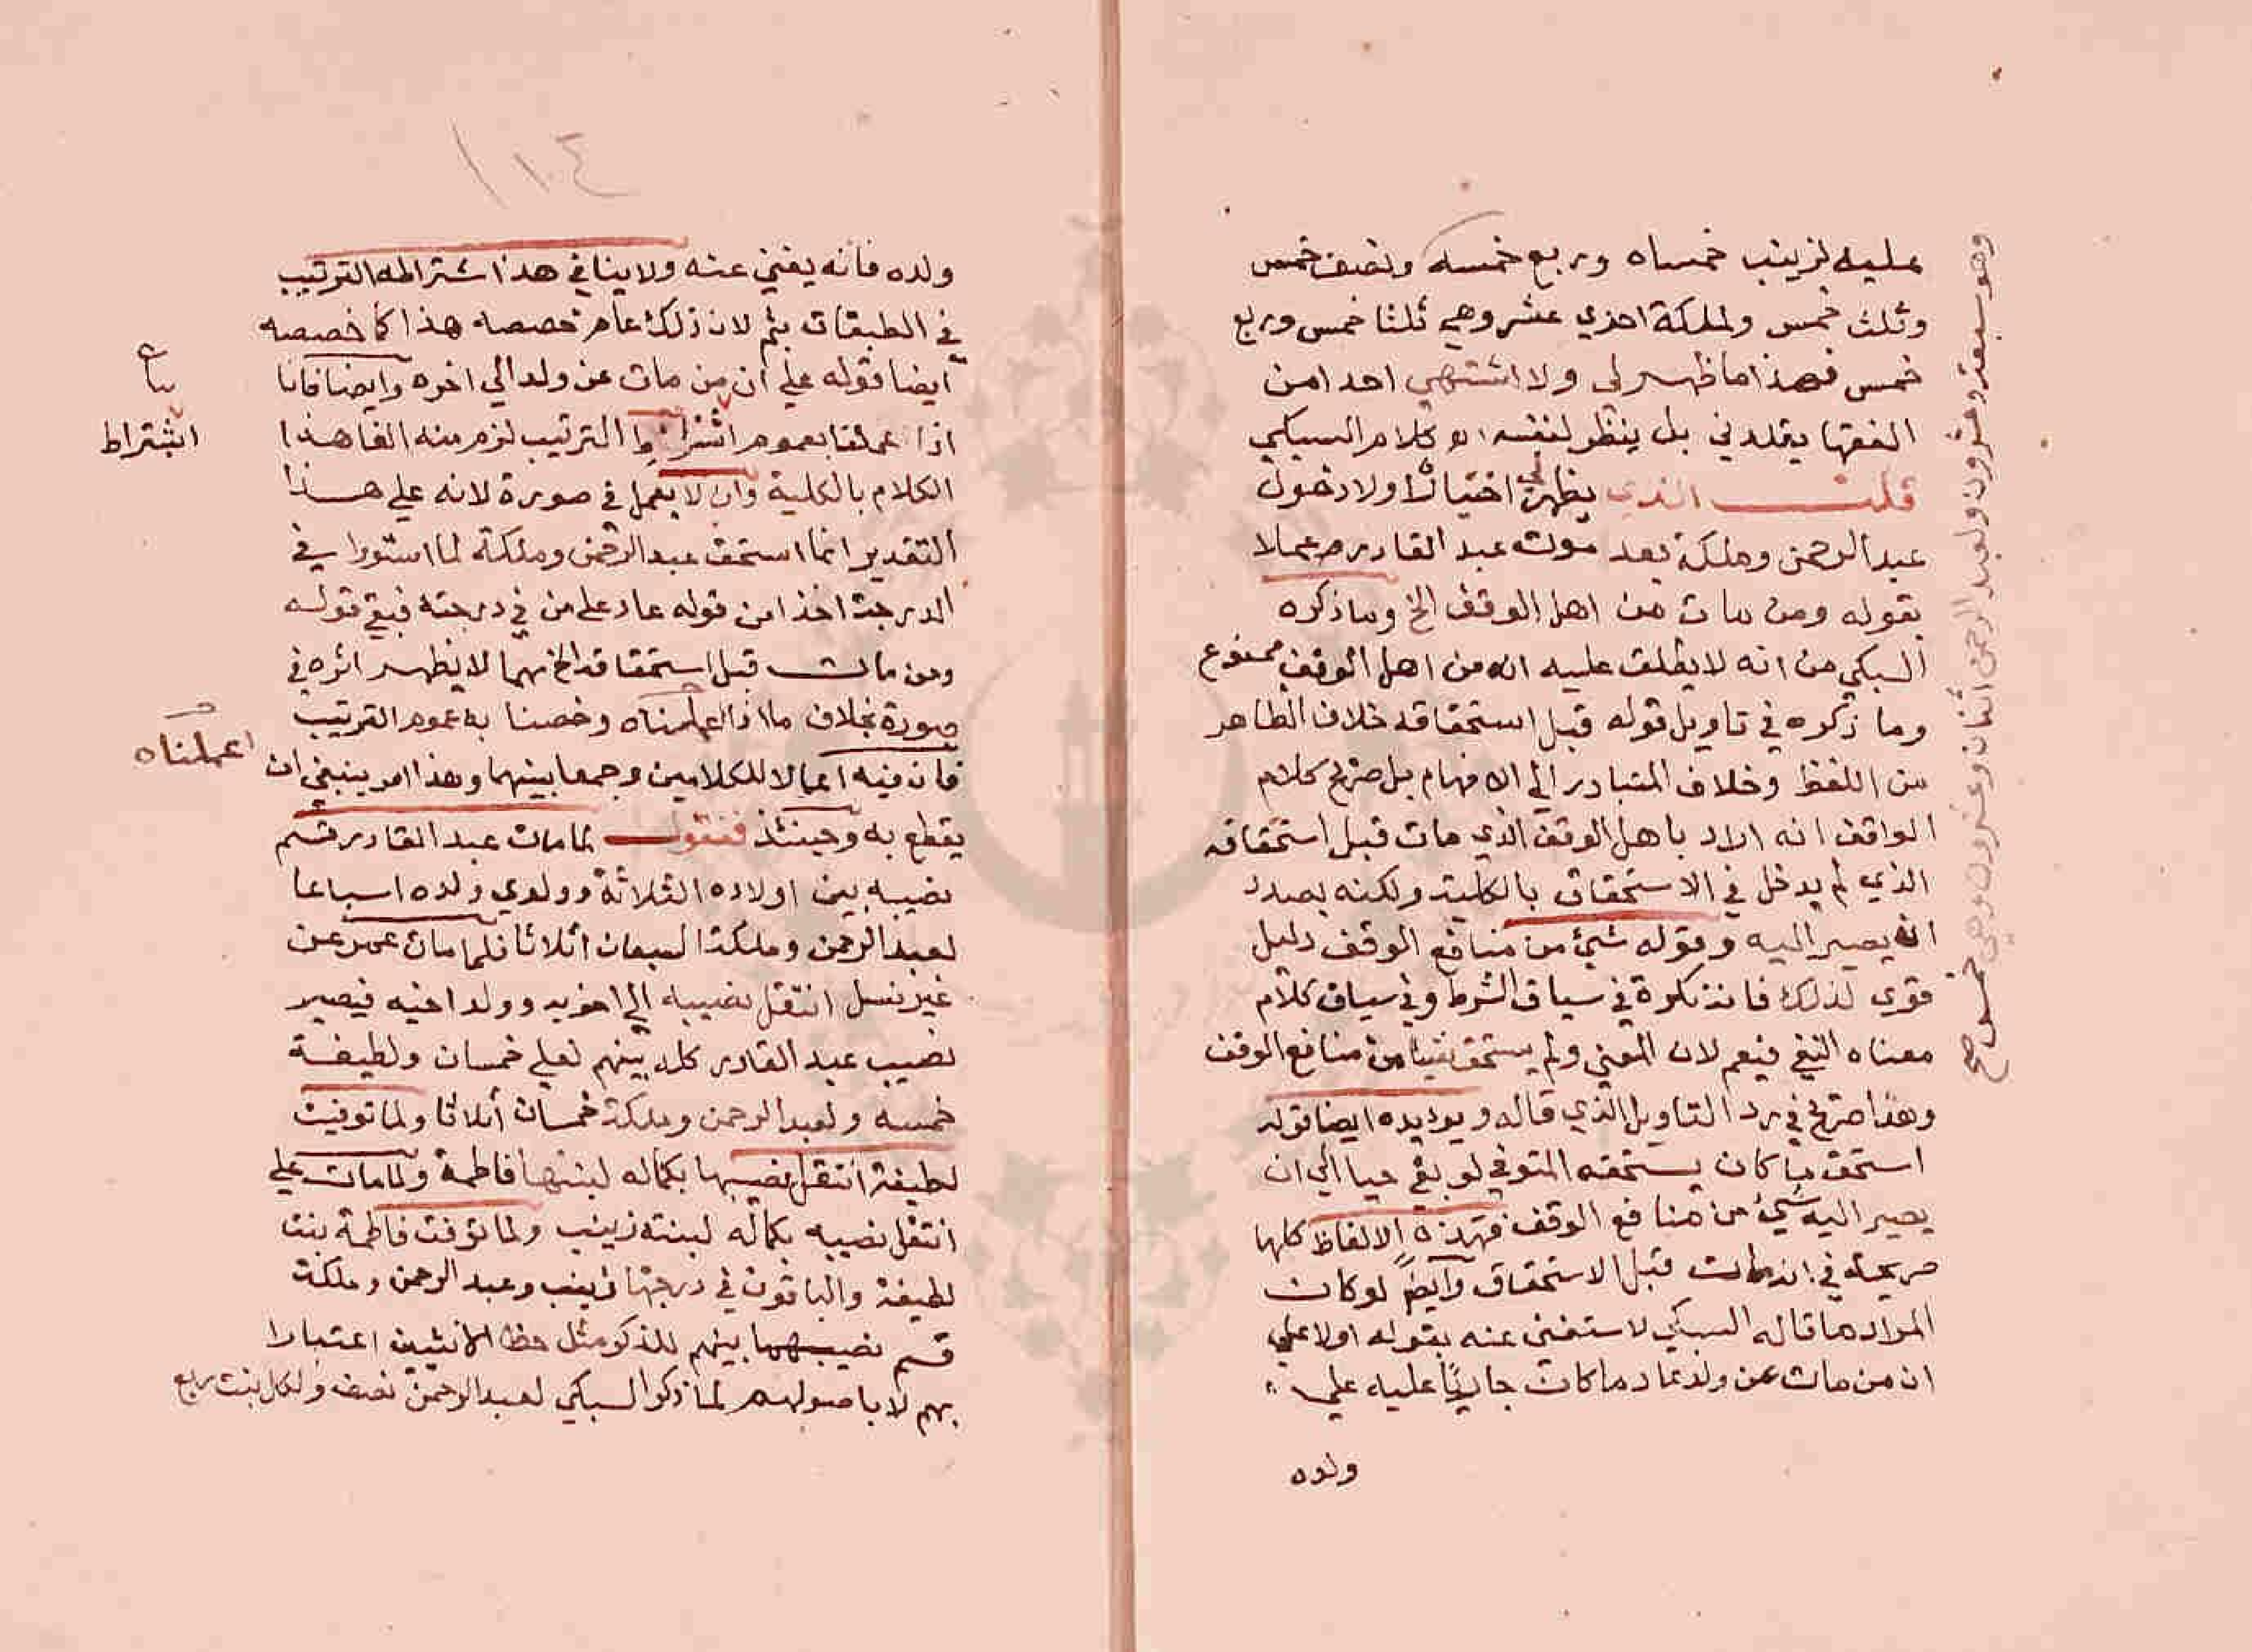 عليه لزينب خمساه وربع خمسه ونصف خمس
وثلث خمس ولملكة احدي عشر وهي ثلثا خمس وربع
خمس فهذا ما ظهر لي ولا اشتهي احدا من
الفقها يقلدني بل ينظر لنفسه اه كلام السبكي
قلت الذي يظهر لي اختيار اولا دخول
عبد الرحمن وملكة بعد موت عبد القادر عملا
بقوله ومن مات من اهل الوقف الخ وما ذكره
السبكي من انه لا يطلق عليه انه من اهل الوقف ممنوع
وما ذكره في تاويل قوله قبل استحقاقه خلاف الظاهر
من اللفظ وخلاف المتبادر الي الافهام بل صريح كلام
الواقف انه اراد باهل الوقف الذي مات قبل استحقاقه
الذي لم يدخل في الاستحقاق بالكلية ولكنه بصدد
ان يصير اليه وقوله شيئ من منافع الوقف دليل
قوي لذلك فانه نكرة في سياق الشرط وفي سياق كلام
معناه النفي فيعم لان المعني ولم يستحق شيئا من منافع الوقف
وهذا صريح في رد التاويل الذي قاله ويؤيده ايضا قوله
استحق ما كان يستحقه المتوفي لو بقي حيا الي ان
يصير اليه شيئ من منافع الوقف فهذه الالفاظ كلها
صريحة في انه مات قبل الاستحقاق وايضا لو كان
المراد ما قاله السبكي لاستغني عنه بقوله اولا علي
ان من مات عن ولد عاد ما كان جاريا عليه علي
ولده
وهو سبعة وعشرون ولعبد الرحمن اثنان وعشرون وهي خمس صح
١٠٤
ولده فانه يغني عنه ولا ينافي هذا اشتراطه الترتيب
في الطبقات بثم لان ذلك عام خصصه هذا كما خصصه
ايضا قوله علي ان من مات عن ولد الي اخره وايضا فانا
اذا عملنا بعموم اشتراط الترتيب لزم منه الغا هذا
الكلام بالكلية وان لا يعمل في صورة لانه علي هذا
التقدير انما استحق عبد الرحمن وملكة لما استووا في
الدرجة اخذا من قوله عاد علي من في درجته فبقي قوله
ومن مات قبل استحقاقه الخ مهما لا يظهر اثره في
صورة بخلاف ما اذا اعملناه وخصنا به عموم الترتيب
فان فيه اعمالا للكلامين وجمعا بينهما وهذا امر ينبغي ان
يقطع به وحينئذ فنقول لما مات عبد القادر قسم
نصيبه بين اولاده الثلاثة وولدي ولده اسباعا
لعبد الرحمن وملكة السبعان اثلاثا فلما مات عمر عن
غير نسل انتقل نصيبه الي اخويه وولد اخيه فيصير
نصيب عبد القادر كله بينهم لعلي خمسان ولطيفة
خمسه ولعبد الرحمن وملكة خمسان أثلاثا ولما توفيت
لطيفة انتقل نصيبها بكماله لبنتها فاطمة ولما مات علي
انتقل نصيبه بكماله لبنته زينب ولما توفت فاطمة بنت
لطيفة والباقون في درجتها زينب وعبد الرحمن وملكة
قسم نصيبها بينهم للذكر مثل حظ الانثيين اعتبارا
بهم لا باصولهم لما ذكر السبكي لعبد الرحمن نصف ولكل بنت ربع
اشتراط
اعملناه